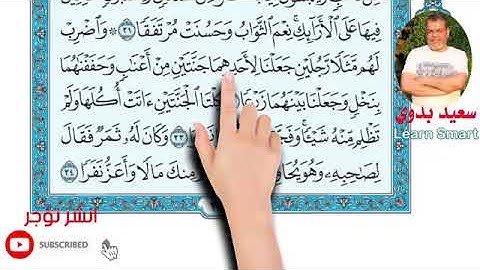 فِيهَا عَلَى ٱلْأَرَآئِكِ ۚ نِعْمَ ٱلثَّوَابُ وَحَسُنَتْ مُرْتَفَقًا ٣١ ۞ وَٱضْرِبْ
لَهُم مَّثَلًا رَّجُلَيْنِ جَعَلْنَا لِأَحَدِهِمَا جَنَّتَيْنِ مِنْ أَعْنَٰبٍ وَحَفَفْنَٰهُمَا
بِنَخْلٍ وَجَعَلْنَا بَيْنَهُمَا زَرْعًا كِلْتَا ٱلْجَنَّتَيْنِ ءَاتَتْ أُكُلَهَا وَلَمْ
تَظْلِم مِّنْهُ شَيْـًٔا ۚ ٣٣ وَكَانَ لَهُۥ ثَمَرٌ فَقَالَ
لِصَٰحِبِهِۦ وَهُوَ مِنكَ مَالًا وَأَعَزُّ نَفَرًا ٣٤
سعيد بدوي
Learn Smart
انشر تؤجر
SUBSCRIBED